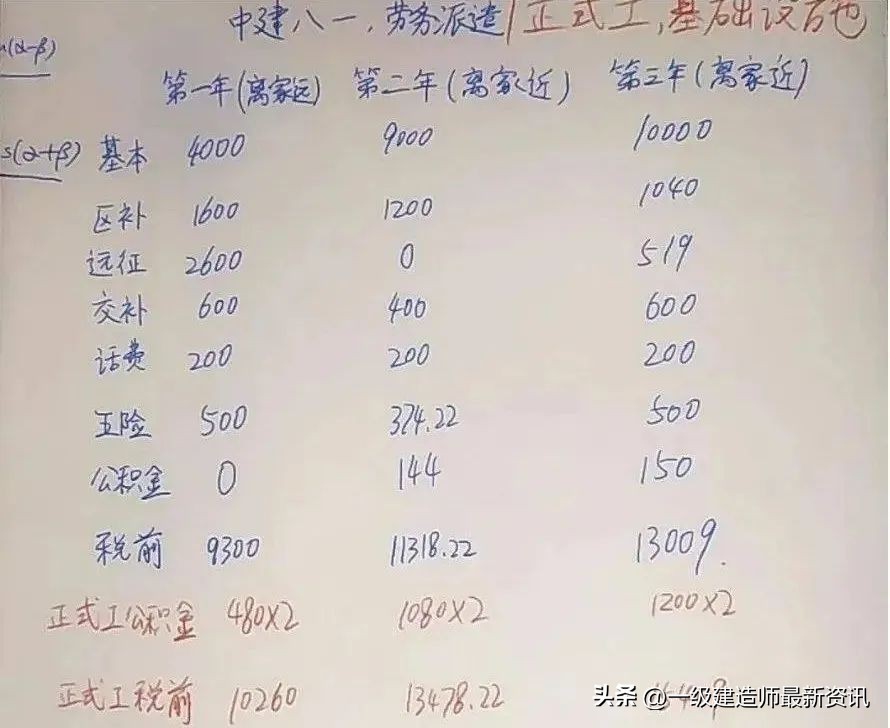 中建八一，劳务派遣/正式工，基础设方也
(α-β)
第一年(离家远) 第二年(离家近) 第三年(离家近)
s(α+β)
基本 4000 9000 10000
区补 1600 1200 1040
远征 2600 0 519
交补 600 400 600
话费 200 200 200
五险 500 374.22 500
公积金 0 144 150
税前 9300 11318.22 13009.
正式工公积金 480×2 1080×2 1200×2
正式工税前 10260 13478.22
头条 @一级建造师最新资讯